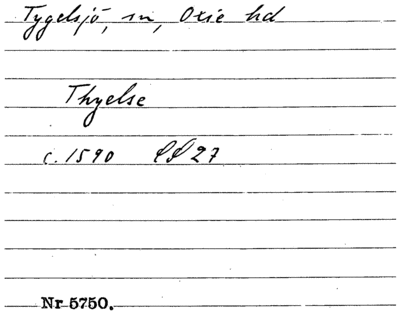 Tygelsjö, sn, Oxie hd
Thyelse
c. 1590 27
Nr 5750.